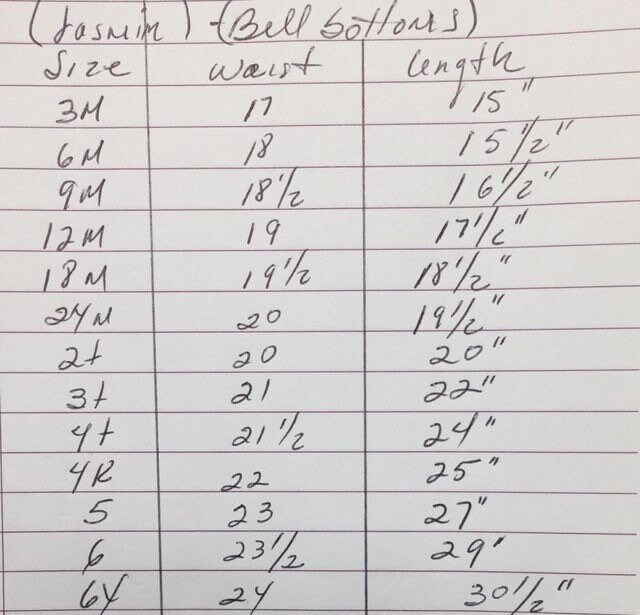 (Jasmin) - (Bell bottoms)
Size waist length
3M 17 15"
6M 18 15 1/2"
9M 18 1/2 16 1/2"
12M 19 17 1/2"
18M 19 1/2 18 1/2"
24M 20 19 1/2"
2t 20 20"
3t 21 22"
4t 21 1/2 24"
4R 22 25"
5 23 27"
6 23 1/2 29"
6Y 24 30 1/2"